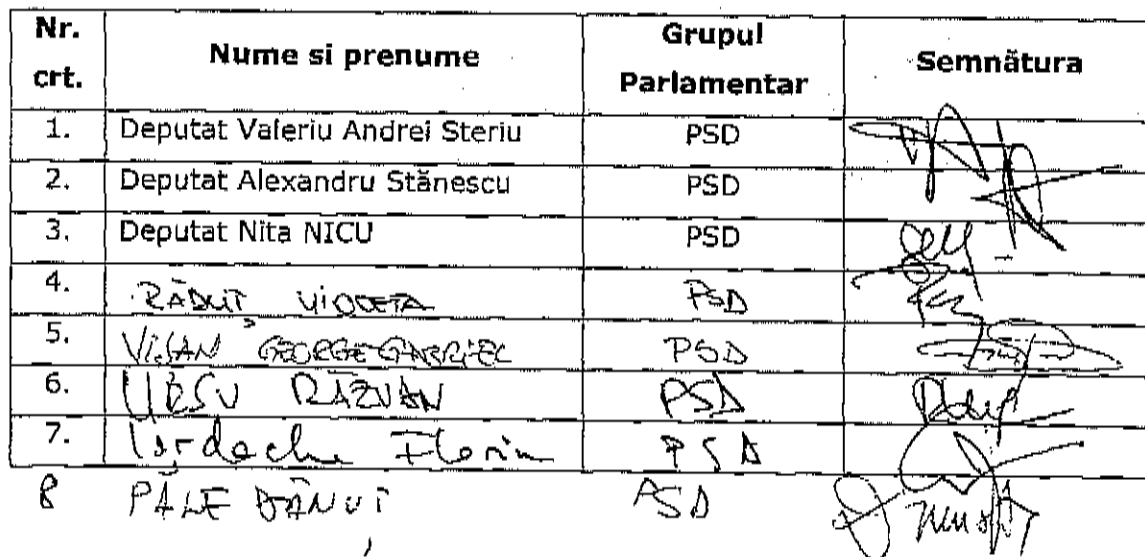 Nr. crt. Nume si prenume Grupul Parlamentar Semnătura
1. Deputat Valeriu Andrei Steriu PSD
2. Deputat Alexandru Stănescu PSD
3. Deputat Nita NICU PSD
4. RĂDUȚ VIOLETA PSD
5. VIȘAN GEORGE-GABRIEL PSD
6. RĂZVAN PSD
7. Iordache Florin PSD
8 PÂLE DĂNUȚ PSD